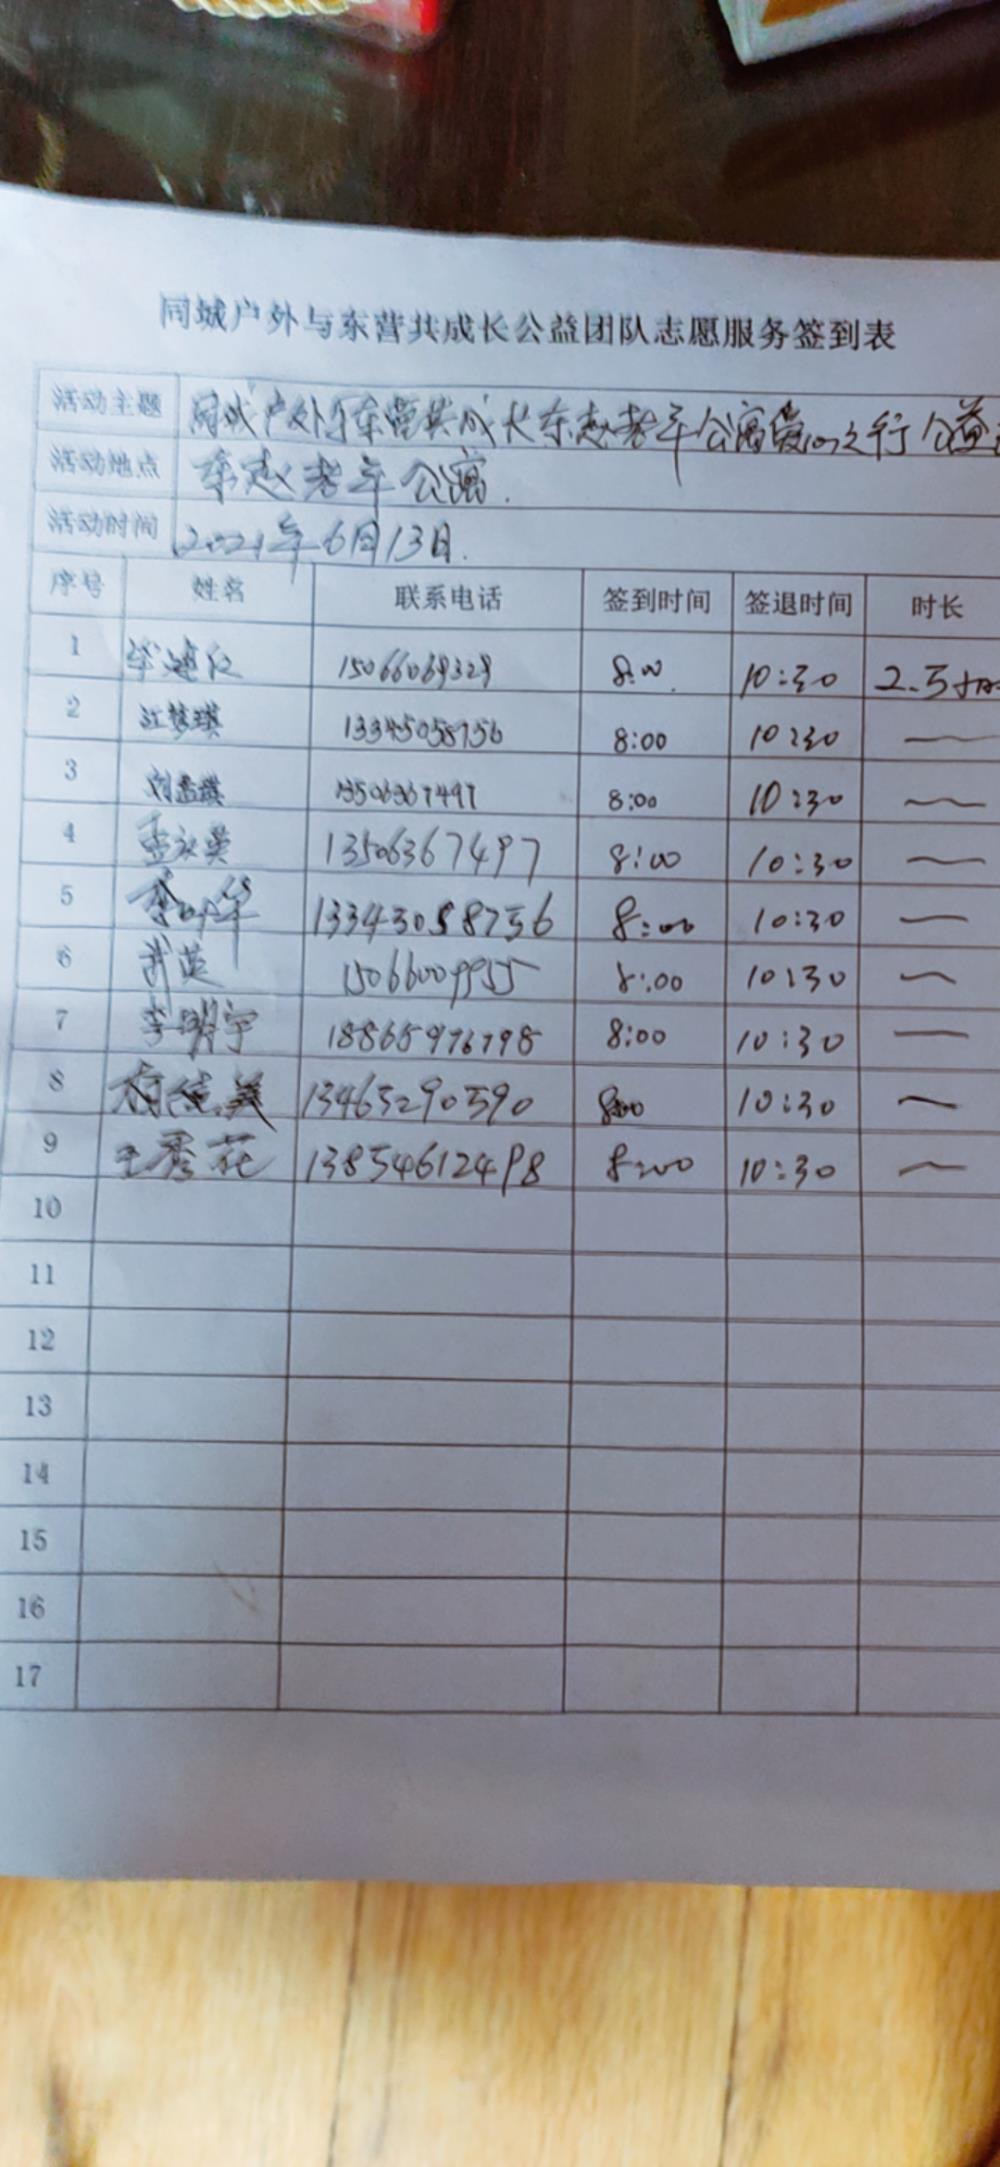 同城户外与东营共成长公益团队志愿服务签到表
活动主题 同城户外与东营共成长东赵老年公寓爱心之行公益
活动地点 东赵老年公寓.
活动时间 2021年6月13日.
序号 姓名 联系电话 签到时间 签退时间 时长
1 15066069329 8:00 10:30 2.5小时
2 江梦琪 13345058756 8:00 10:30 —
3 刘孟祺 13506367497 8:00 10:30 —
4 李永英 13506367497 8:00 10:30 —
5 8:00 10:30 —
6 武英 15066009955 8:00 10:30 —
7 李明宇 18865976798 8:00 10:30 —
8 13465290590 8:00 10:30 —
9 王秀花 13854612498 8:00 10:30 —
10
11
12
13
14
15
16
17